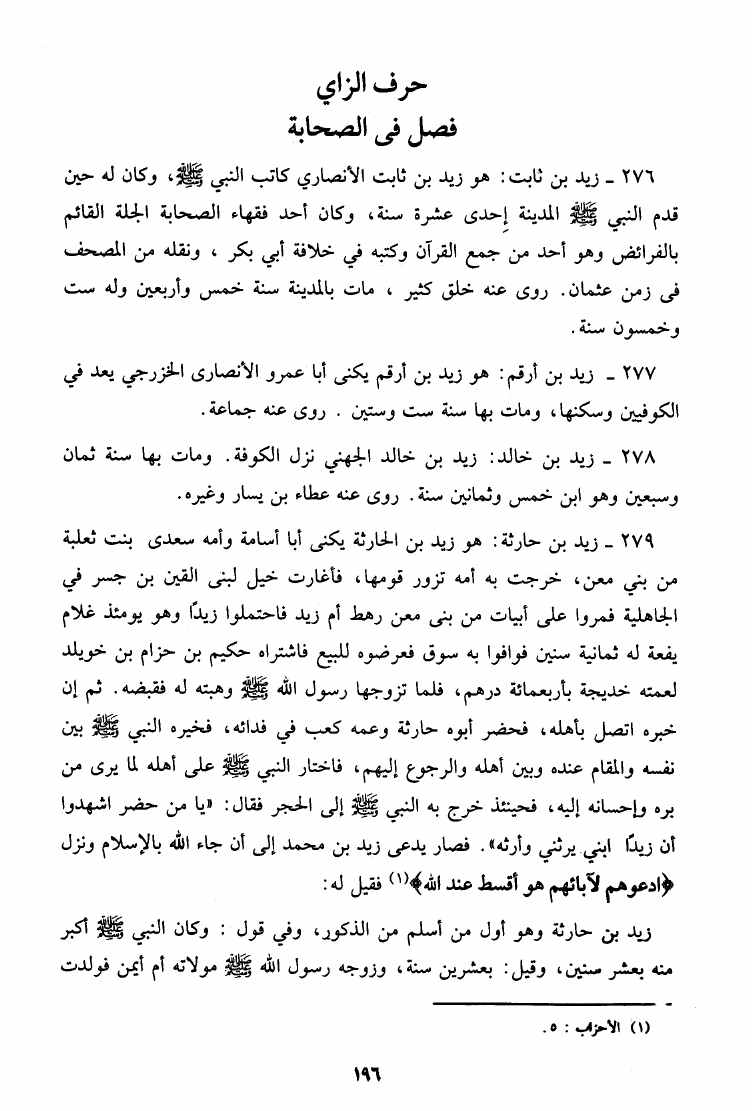 حرف الزاي
فصل فى الصحابة
٢٧٦ ـ زيد بن ثابت: هو زيد بن ثابت الأنصاري كاتب النبي ﷺ، وكان له حين
قدم النبي ﷺ المدينة إحدى عشرة سنة، وكان أحد فقهاء الصحابة الجلة القائم
بالفرائض وهو أحد من جمع القرآن وكتبه في خلافة أبي بكر ، ونقله من المصحف
فى زمن عثمان. روى عنه خلق كثير ، مات بالمدينة سنة خمس وأربعين وله ست
وخمسون سنة.
٢٧٧ ـ زيد بن أرقم: هو زيد بن أرقم يكنى أبا عمرو الأنصارى الخزرجي يعد في
الكوفيين وسكنها، ومات بها سنة ست وستين . روى عنه جماعة.
٢٧٨ ـ زيد بن خالد: زيد بن خالد الجهني نزل الكوفة. ومات بها سنة ثمان
وسبعين وهو ابن خمس وثمانين سنة. روى عنه عطاء بن يسار وغيره.
٢٧٩ ـ زيد بن حارثة: هو زيد بن الحارثة يكنى أبا أسامة وأمه سعدى بنت ثعلبة
من بني معن، خرجت به أمه تزور قومها، فأغارت خيل لبنى القين بن جسر في
الجاهلية فمروا على أبيات من بنى معن رهط أم زيد فاحتملوا زيدًا وهو يومئذ غلام
يفعة له ثمانية سنين فوافوا به سوق فعرضوه للبيع فاشتراه حكيم بن حزام بن خويلد
لعمته خديجة بأربعمائة درهم، فلما تزوجها رسول الله ﷺ وهبته له فقبضه. ثم إن
خبره اتصل بأهله، فحضر أبوه حارثة وعمه كعب في فدائه، فخيره النبي ﷺ بين
نفسه والمقام عنده وبين أهله والرجوع إليهم، فاختار النبي ﷺ على أهله لما يرى من
بره وإحسانه إليه، فحينئذ خرج به النبي ﷺ إلى الحجر فقال: «يا من حضر اشهدوا
أن زيدًا ابني يرثني وأرثه». فصار يدعى زيد بن محمد إلى أن جاء الله بالإسلام ونزل
﴿ادعوهم لآبائهم هو أقسط عند الله﴾(١) فقيل له:
زيد بن حارثة وهو أول من أسلم من الذكور، وفي قول : وكان النبي ﷺ أكبر
منه بعشر سنين، وقيل: بعشرين سنة، وزوجه رسول الله ﷺ مولاته أم أيمن فولدت
(١) الأحزاب : ٥.
١٩٦